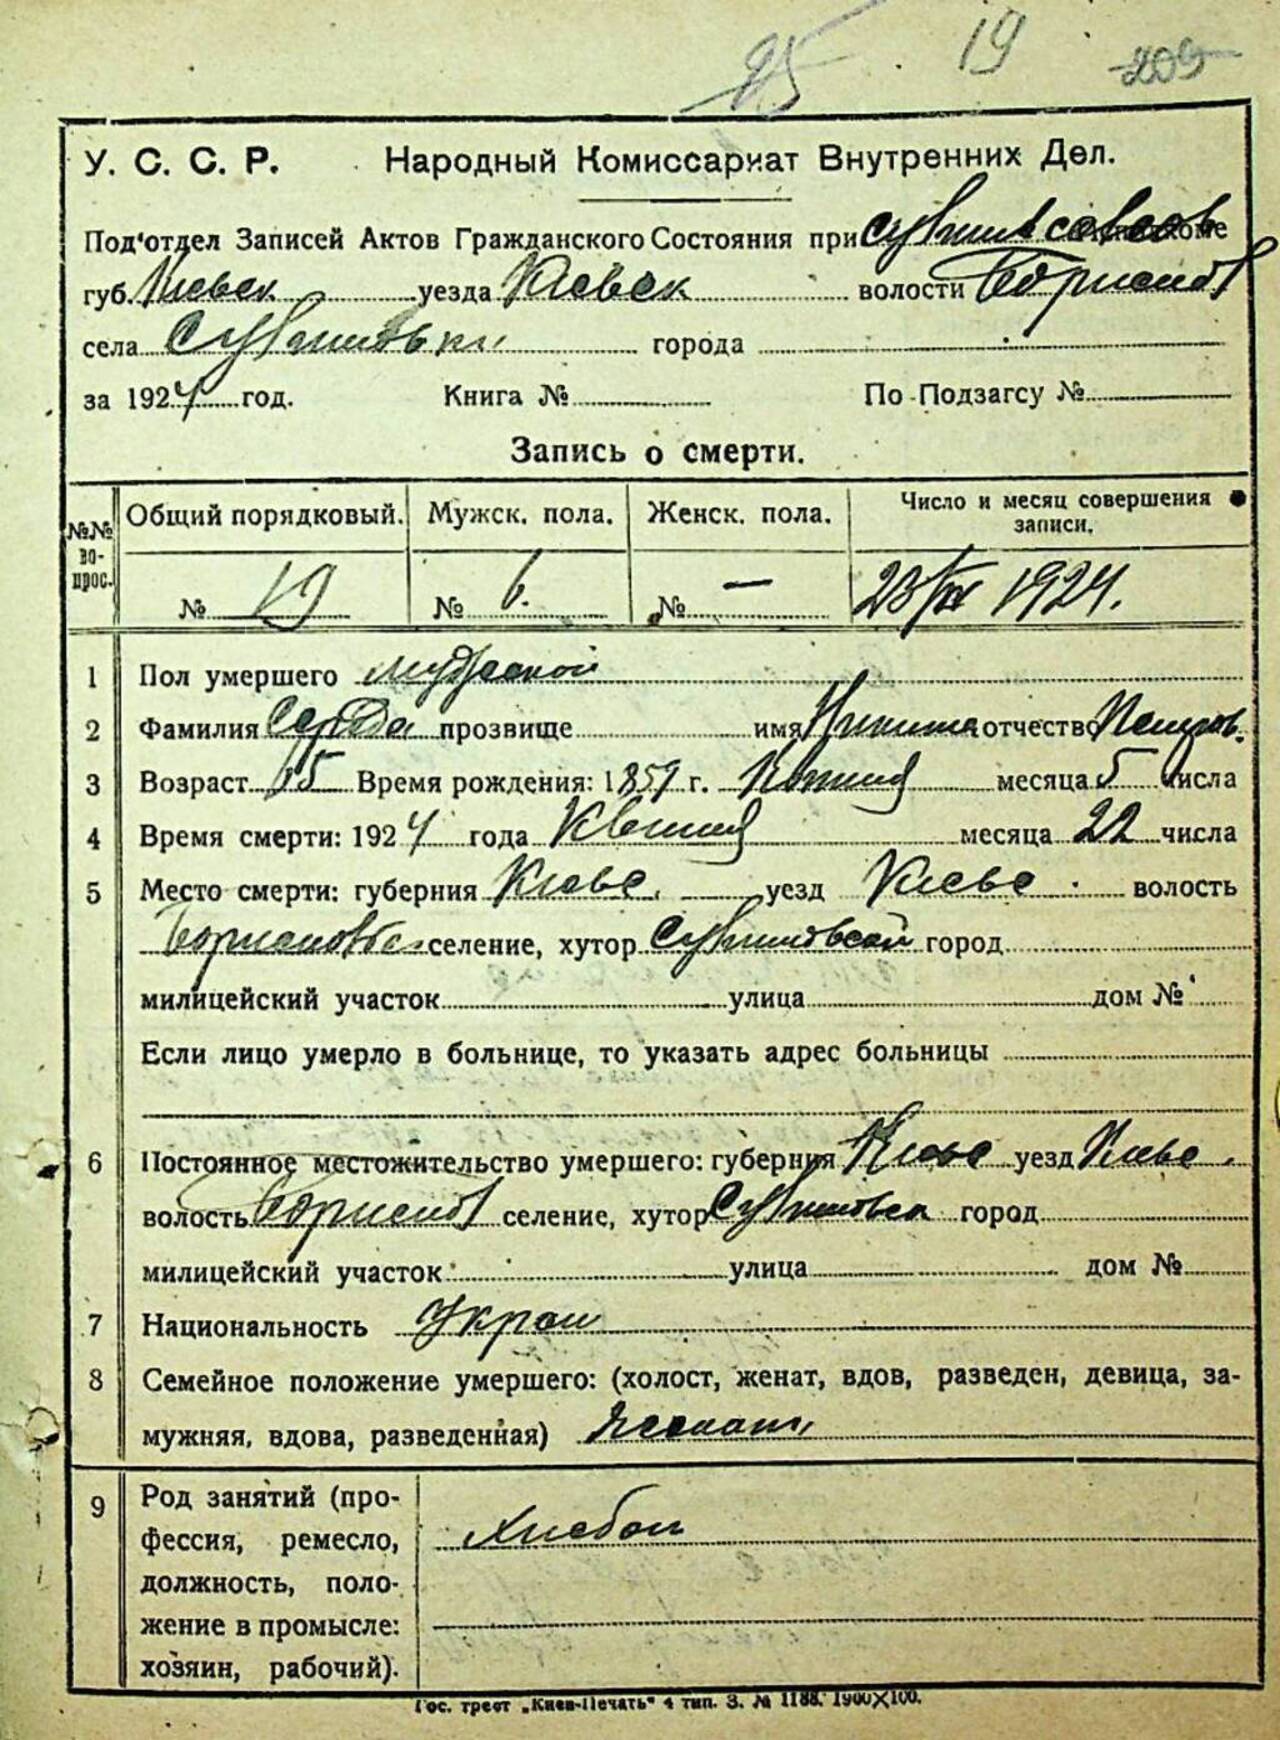 25 19 205
У. С. С. Р. Народный Комиссариат Внутренних Дел.
Под'отдел Записей Актов Гражданского Состояния при
губ. Киевск уезда Киевск волости
села города
за 1924 год. Книга № По Подзагсу №
Запись о смерти.
№№ вопрос. Общий порядковый. Мужск. пола. Женск. пола. Число и месяц совершения записи.
№ 19 № 6. № — 23/IV 1924.
1 Пол умершего мужской
2 Фамилия Середа прозвище имя Никита отчество Петров.
3 Возраст 65 Время рождения: 1859 г. месяца 5 числа
4 Время смерти: 1924 года Квітня месяца 22 числа
5 Место смерти: губерния Киевс. уезд Киевс. волость
селение, хутор город
милицейский участок улица дом №
Если лицо умерло в больнице, то указать адрес больницы
6 Постоянное местожительство умершего: губерния Киевс уезд Киевс.
волость селение, хутор город
милицейский участок улица дом №
7 Национальность Украин
8 Семейное положение умершего: (холост, женат, вдов, разведен, девица, за-
мужняя, вдова, разведенная) Женат
9 Род занятий (про-
фессия, ремесло, Хлебоп
должность, поло-
жение в промысле:
хозяин, рабочий).
Гос. трест „Киев-Печать" 4 тип. З. № 1188. 1900X100.